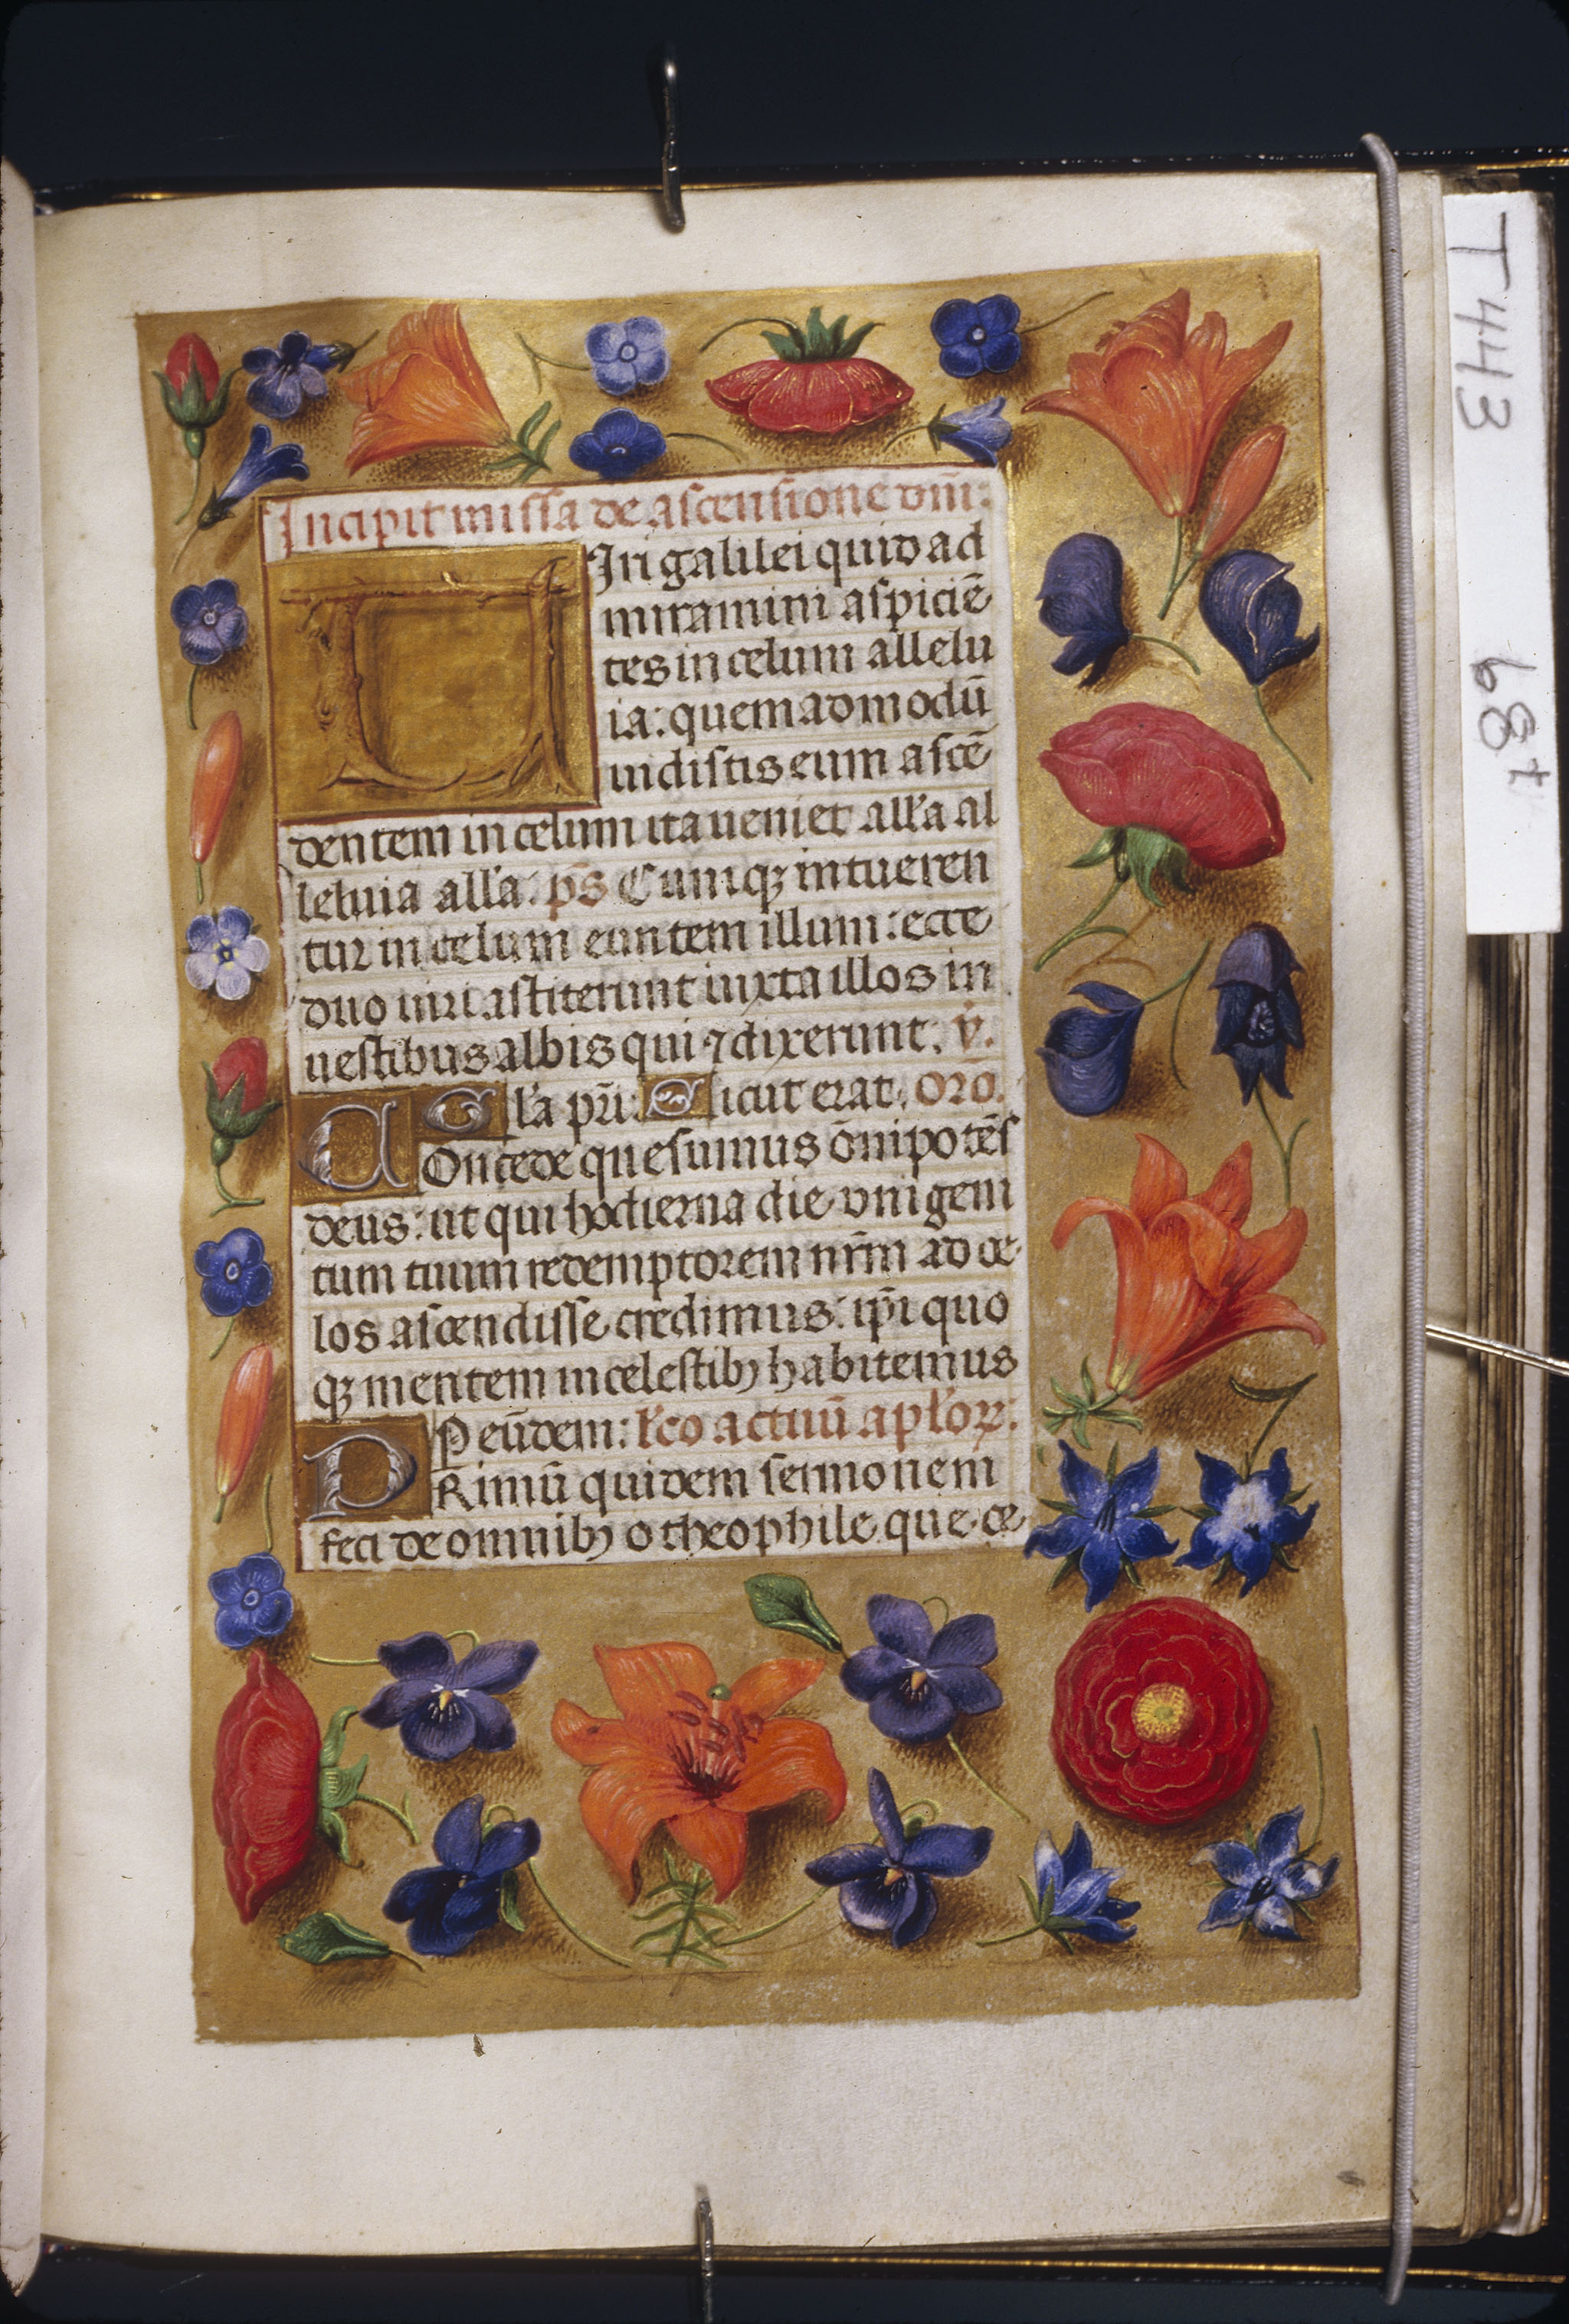 Incipit missa de ascensione dñi:
Uiri galilei quid ad
miramini aspiciē
tes in celum allelu
ia: quemadmodū
uidistis eum ascē
dentem in celum ita ueniet all'a al
leluia all'a. ps̄ Cumqꝫ intueren
tur in celum euntem illum: ecce
duo uiri astiterunt iuxta illos in
uestibus albis qui ⁊ dixerunt. v̄.
G l'a pr̄i: Sicut erat. Orō.
Concede quesumus ōnipotēs
deus: ut qui hodierna die vnigeni
tum tuum redemptorem nr̄m ad ce
los ascendisse credimus: ip̄i quo
qꝫ mentem in celestibꝫ habitemus
P eūdem: l'co actuū apl'oꝝ:
PRimū quidem sermonem
feci de omnibꝫ o theophile que ce
T 443
68 r